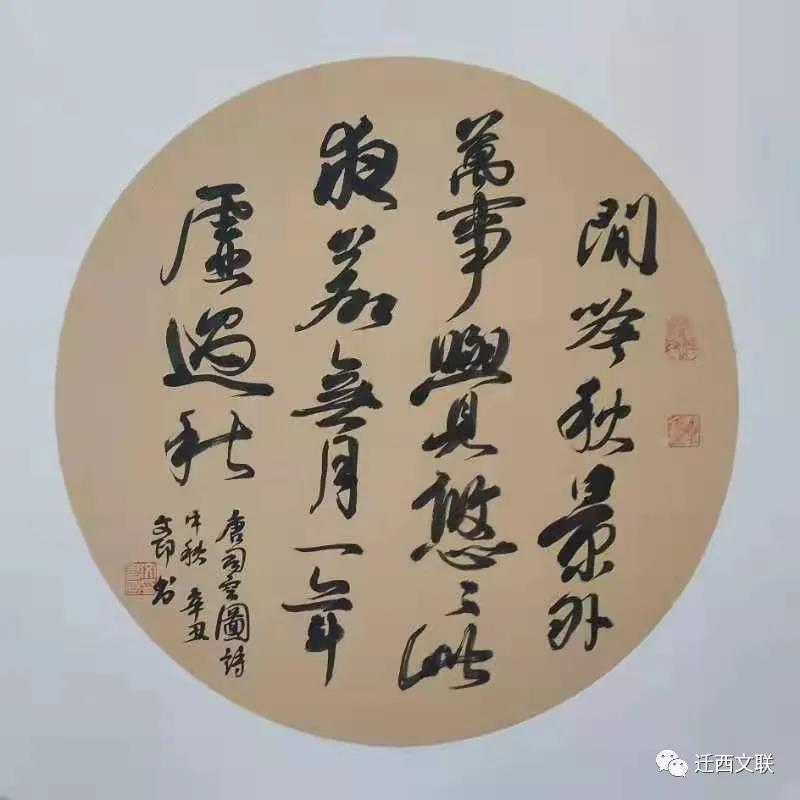 閒吟秋景外
萬事覺悠々此
夜若無月一年
虛過秋
唐司空圖詩
中秋 辛丑
文印书
迁西文联